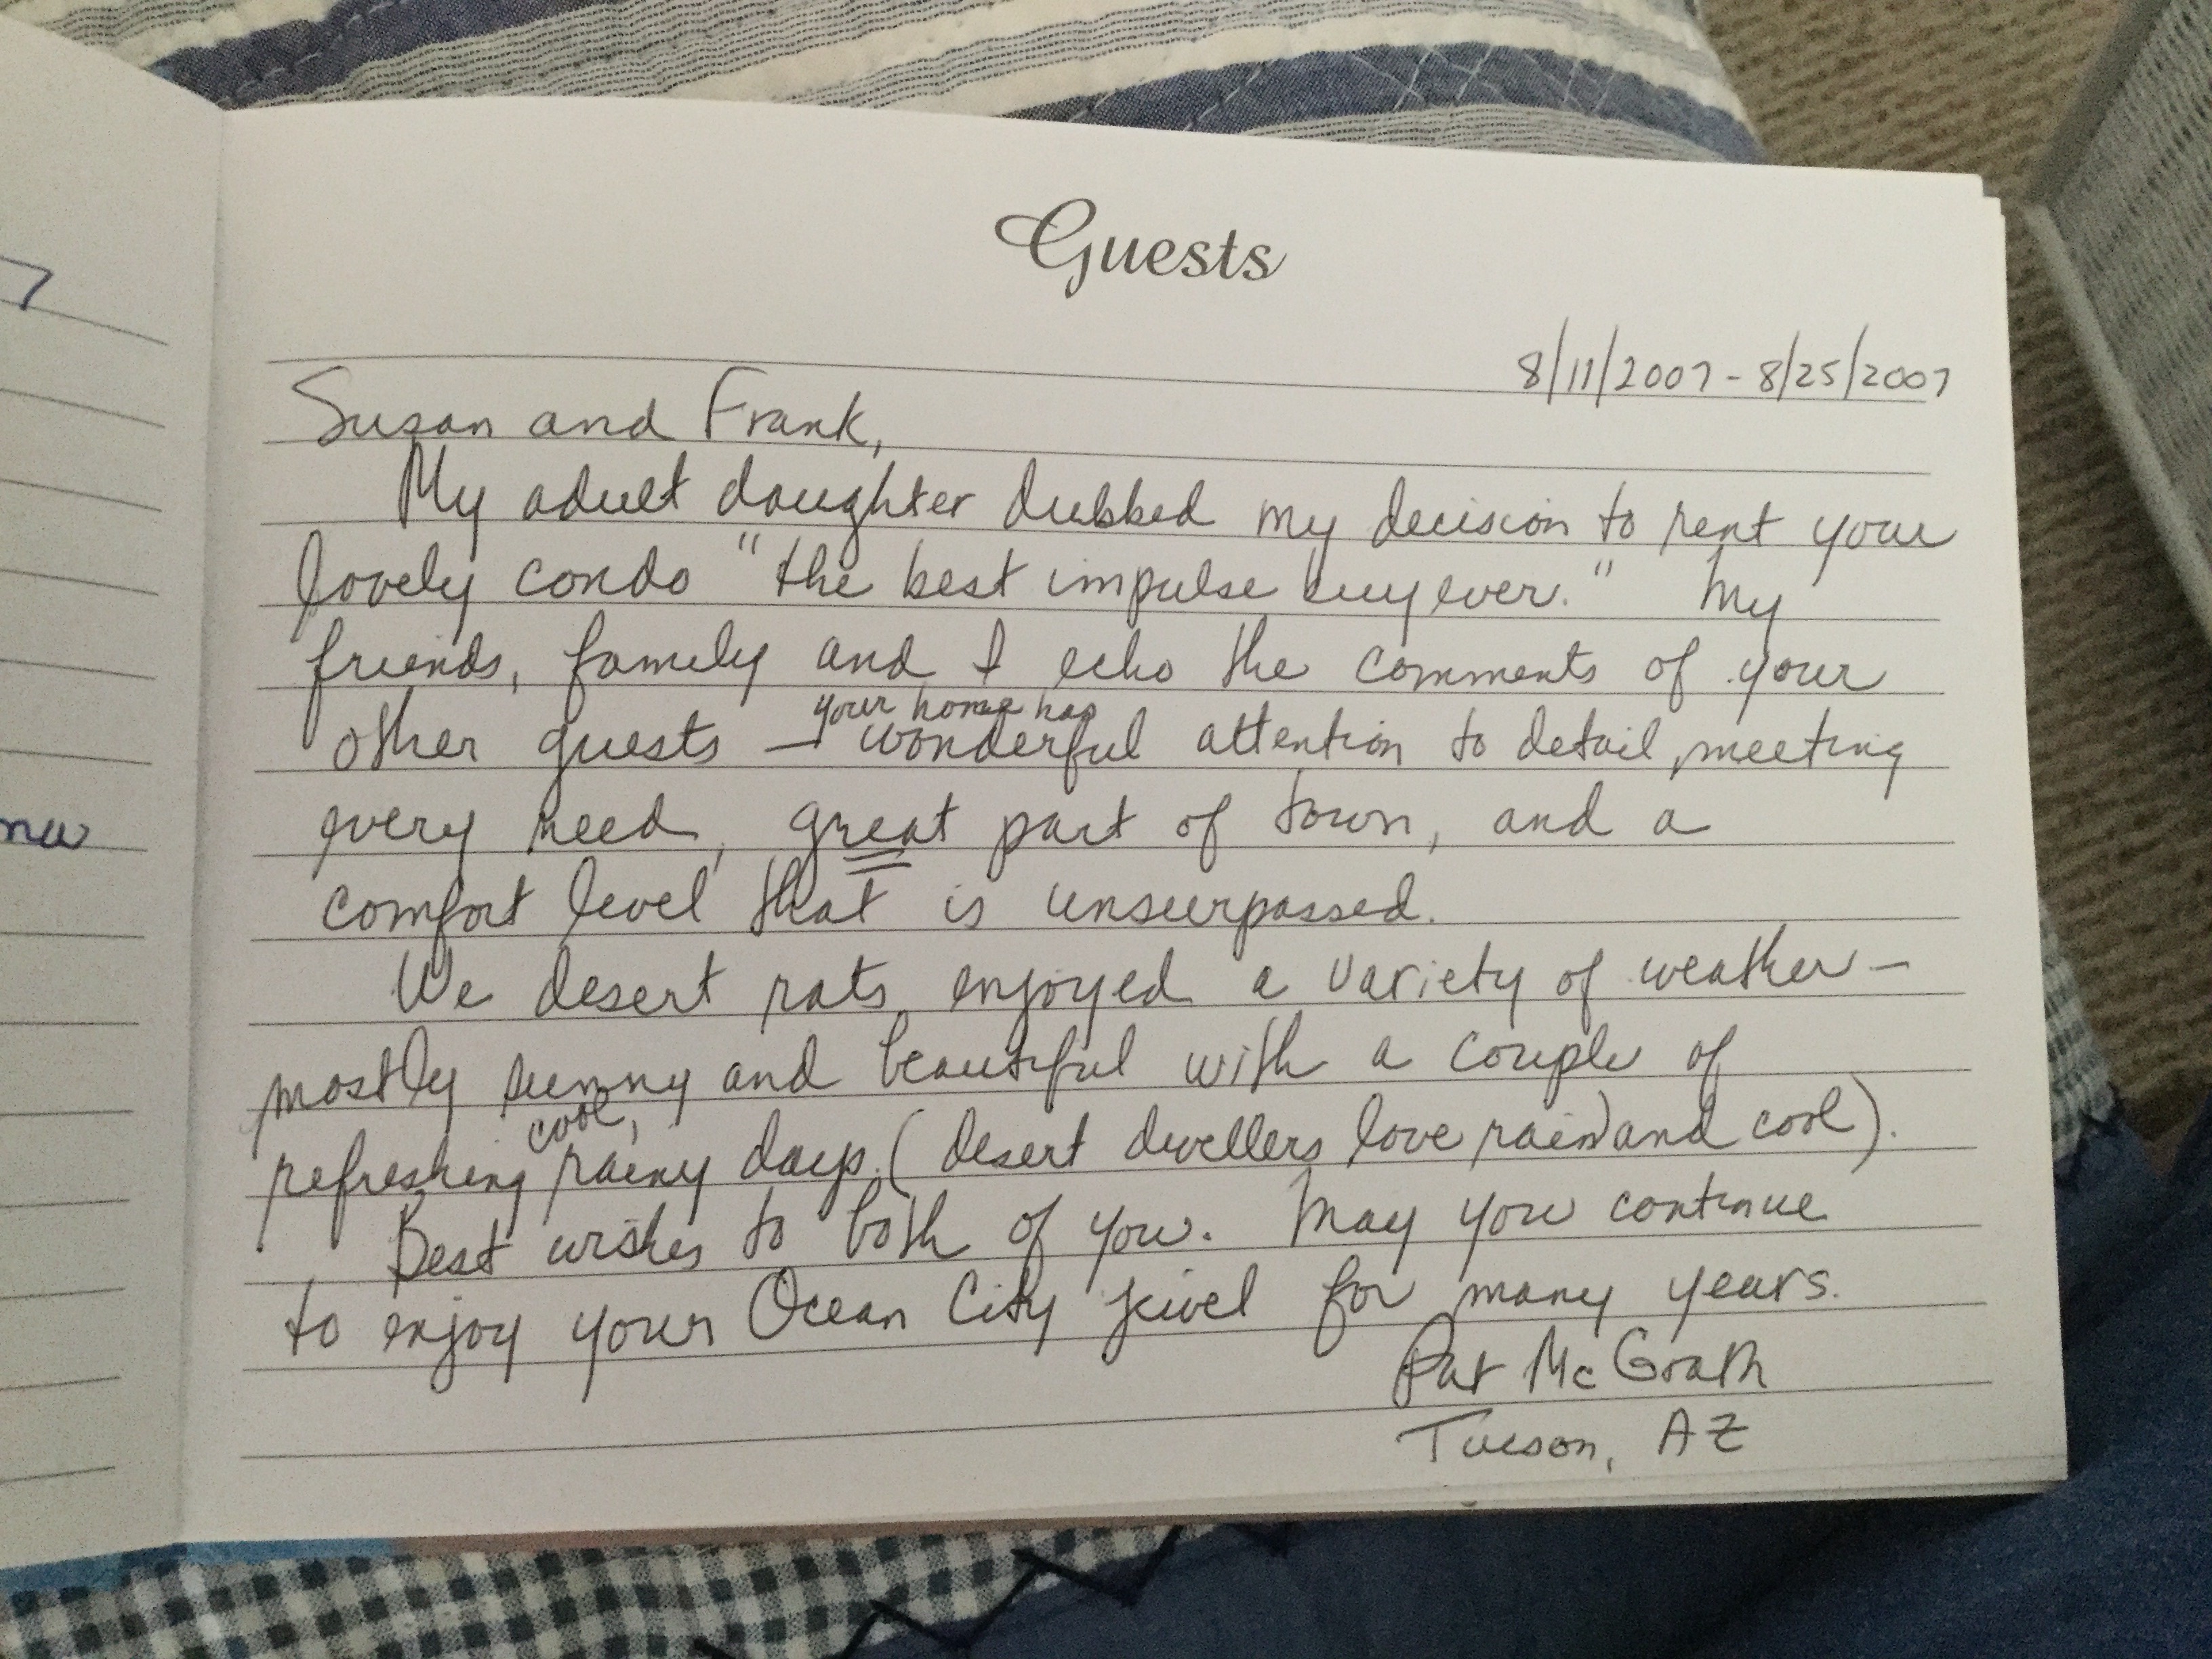 Guests
8/11/2007 - 8/25/2007
Susan and Frank,
My adult daughter dubbed my decision to rent your
lovely condo "the best impulse buy ever." My
friends, family and I echo the comments of your
your home has
other guests — wonderful attention to detail, meeting
every need, great part of town, and a
comfort level that is unsurpassed.
We desert rats enjoyed a variety of weather –
mostly sunny and beautiful with a couple of
cool,
refreshing rainy days. (desert dwellers love rain and cool).
Best wishes to both of you. May you continue
to enjoy your Ocean City jewel for many years.
Pat McGrath
Tucson, AZ